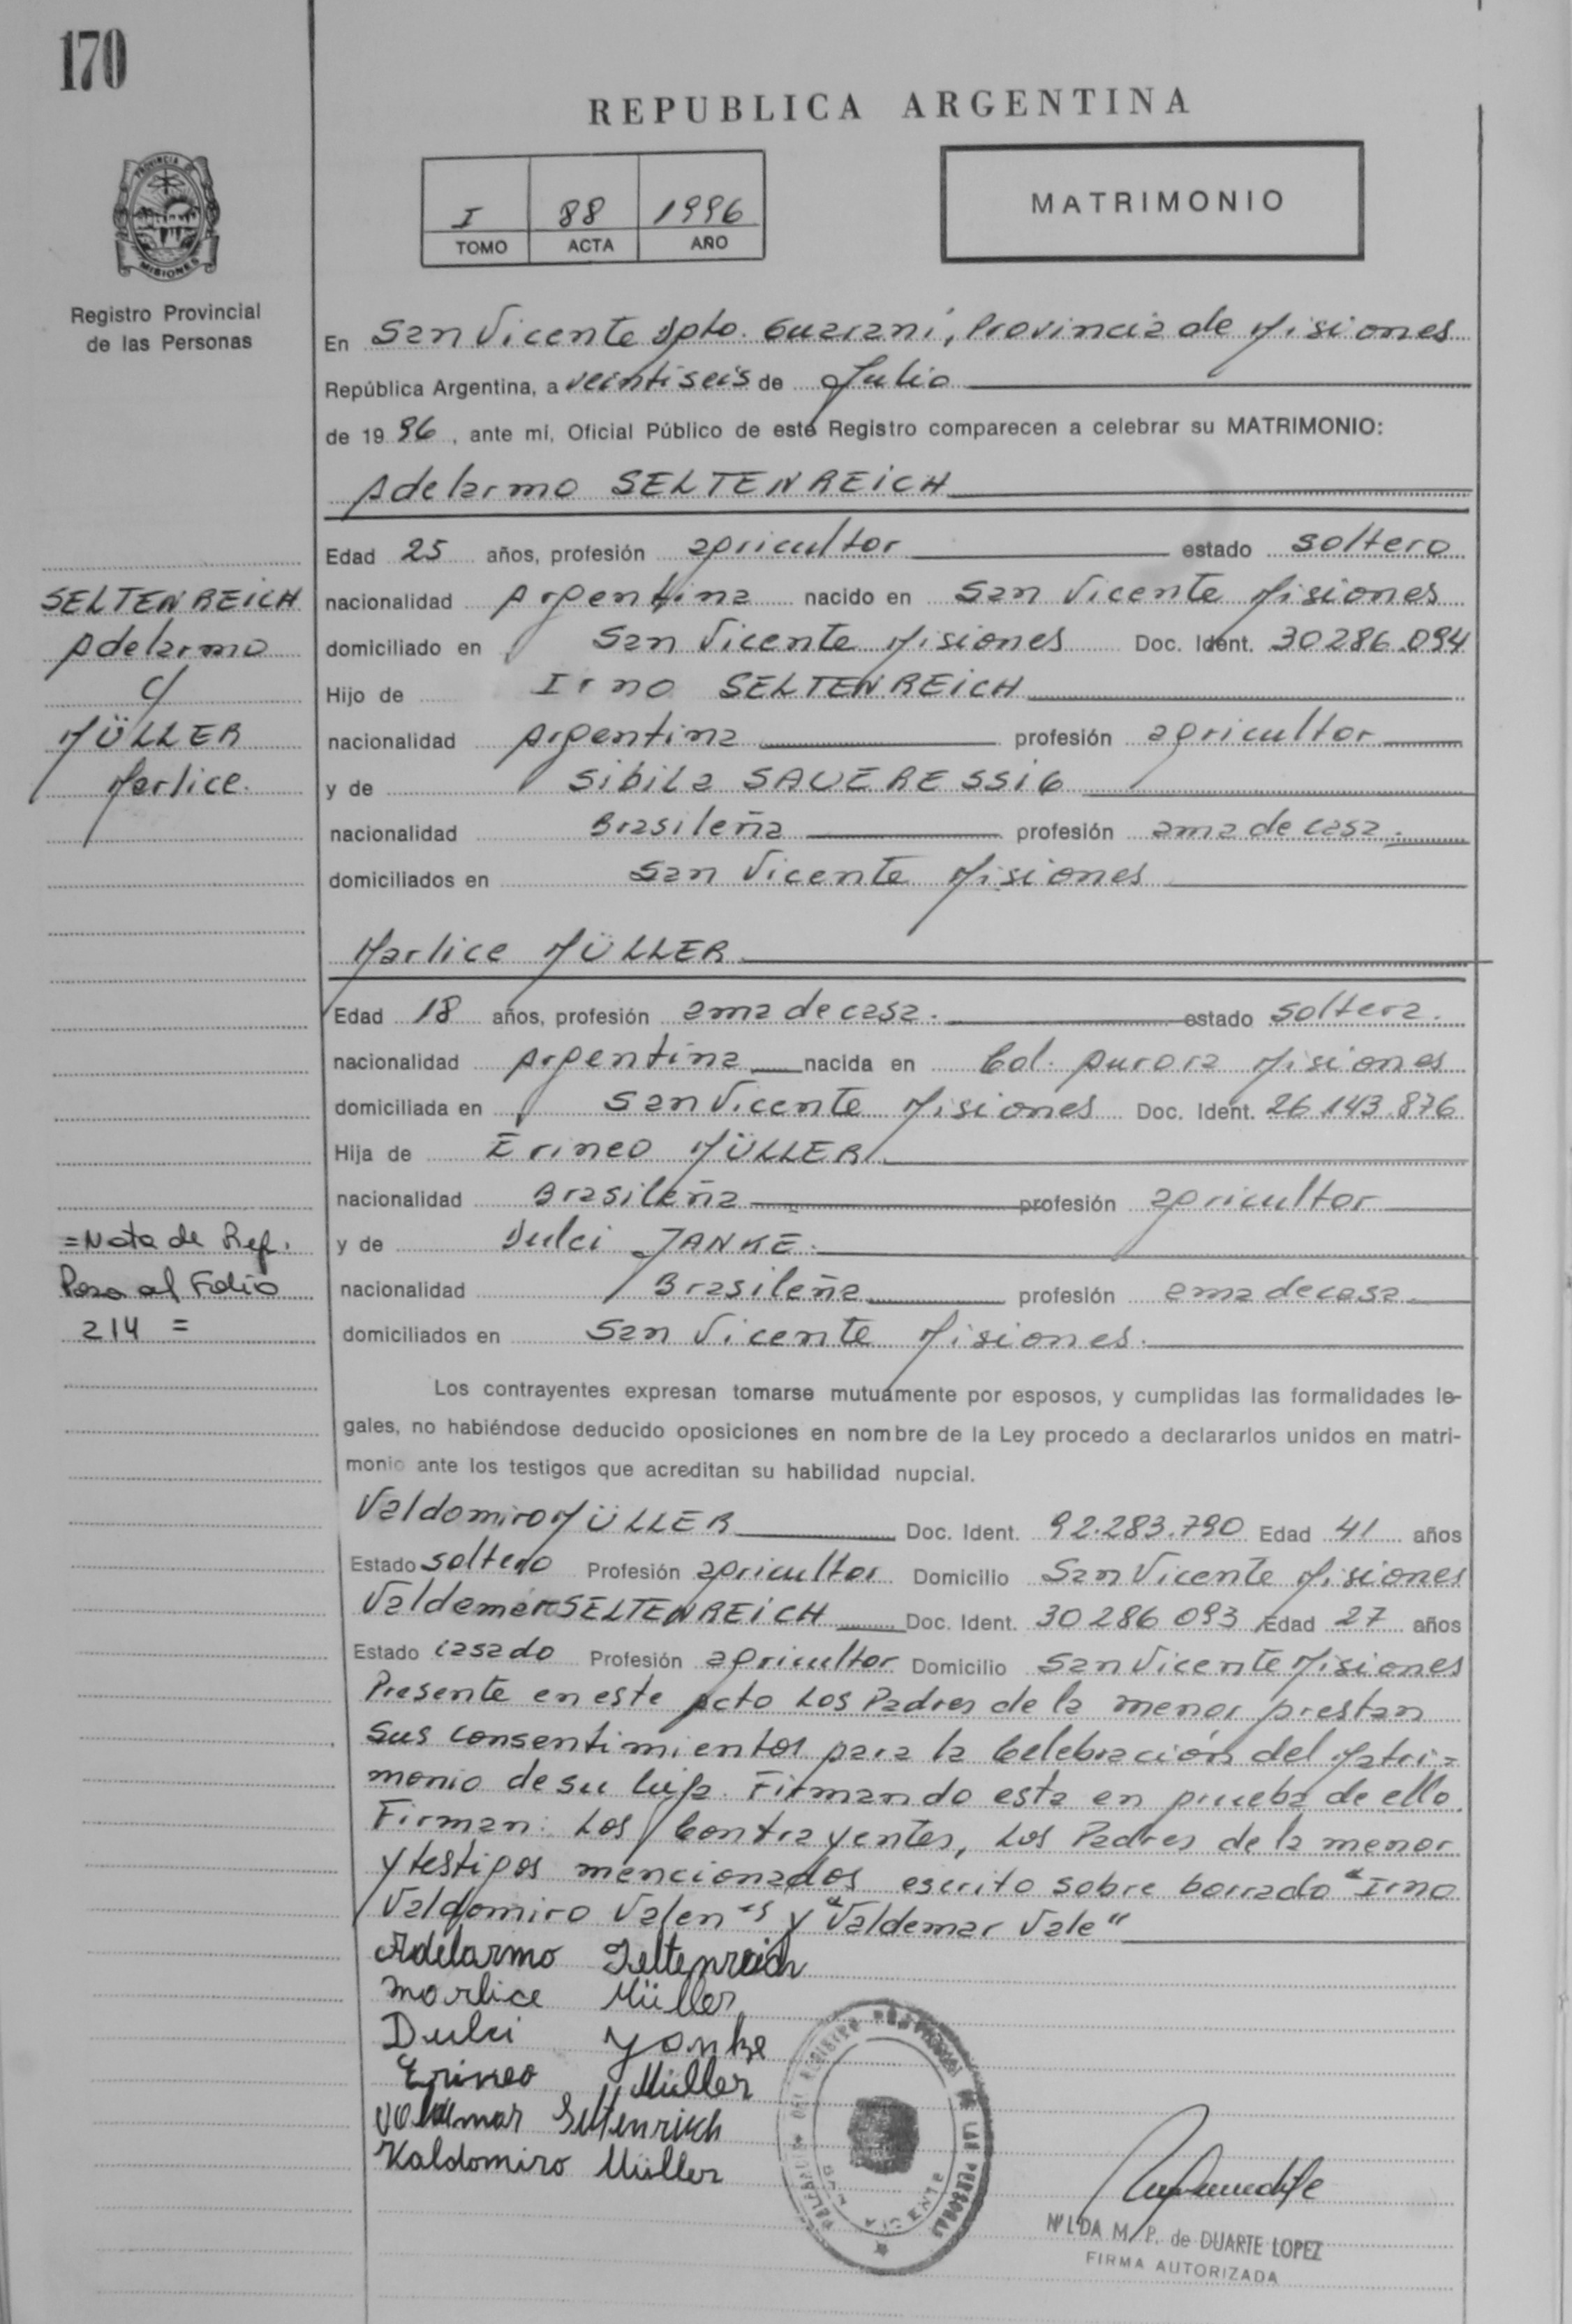 170
REPUBLICA ARGENTINA
I 88 1996
TOMO ACTA AÑO
MATRIMONIO
PROVINCIA DE
MISIONES
Registro Provincial
de las Personas
En San Vicente Dpto. Guaraní, Provincia de Misiones
República Argentina, a veintiseis de Julio
de 19 96, ante mí, Oficial Público de este Registro comparecen a celebrar su MATRIMONIO:
Adelarmo SELTENREICH
Edad 25 años, profesión agricultor estado soltero
nacionalidad Argentina nacido en San Vicente Misiones
domiciliado en San Vicente Misiones Doc. Ident. 30286.094
Hijo de Irno SELTENREICH
nacionalidad Argentina profesión agricultor
y de Sibila SAUERESSIG
nacionalidad Brasileña profesión ama de casa.
domiciliados en San Vicente Misiones
SELTENREICH
Adelarmo
c/
MÜLLER
Marlice.
Marlice MÜLLER
Edad 18 años, profesión ama de casa. estado soltera.
nacionalidad Argentina nacida en Col. Aurora Misiones
domiciliada en San Vicente Misiones Doc. Ident. 26.143.876
Hija de Erineo MÜLLER
nacionalidad Brasileña profesión agricultor
y de Dulci JANKE.
nacionalidad Brasileña profesión ama de casa
domiciliados en San Vicente Misiones.
=Nota de Ref.
Pasa al Folio
214 =
Los contrayentes expresan tomarse mutuamente por esposos, y cumplidas las formalidades le-
gales, no habiéndose deducido oposiciones en nombre de la Ley procedo a declararlos unidos en matri-
monio ante los testigos que acreditan su habilidad nupcial.
Valdomiro MÜLLER Doc. Ident. 92.283.790 Edad 41 años
Estado soltero Profesión agricultor Domicilio San Vicente Misiones
Valdemar SELTENREICH Doc. Ident. 30286093 Edad 27 años
Estado casado Profesión agricultor Domicilio San Vicente Misiones
Presente en este Acto Los Padres de la menor prestan
sus consentimientos para la Celebración del Matri=
monio de su hija. Firmando esta en prueba de ello.
Firman: Los Contrayentes, Los Padres de la menor
y testigos mencionados escrito sobre borrado "Irno
Valdomiro Valen" y "Valdemar Vale"
Adelarmo Seltenreich
Marlice Müller
Dulci Yanke
Erineo Müller
Valdemar Seltenrich
Valdomiro Müller
DELEGACION DEL REGISTRO PROVINCIAL DE LAS PERSONAS
SAN VICENTE
NILDA M. P. de DUARTE LOPEZ
FIRMA AUTORIZADA